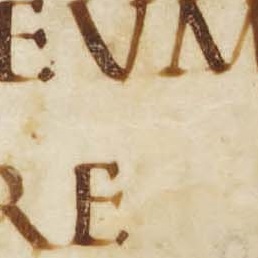 EVM
RE